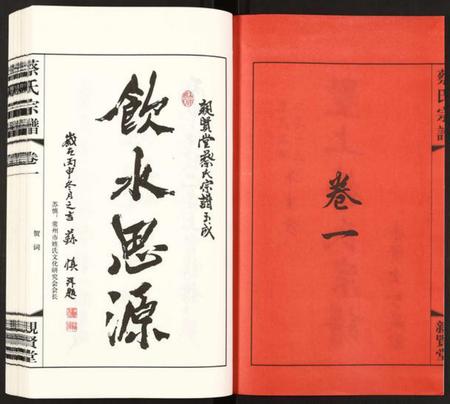 蔡氏宗譜
卷一
親賢堂
卷一
親賢堂蔡氏宗譜玉成
飲水思源
歲在丙申冬月之吉 蘇慎拜題
苏慎：常州市姓氏文化研究会会长
贺词
蔡氏宗譜
卷一
親賢堂